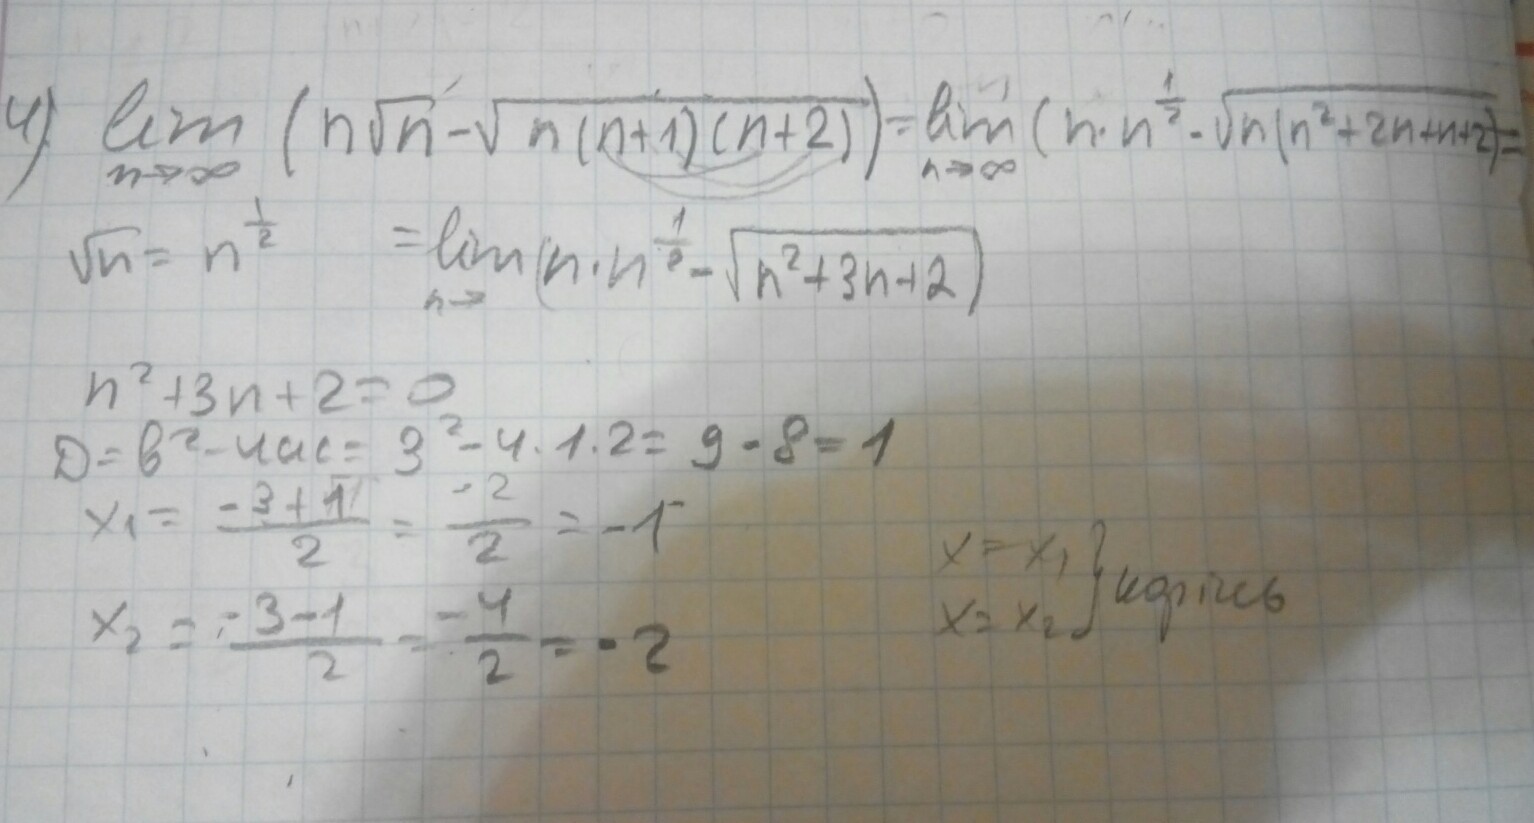 4) lim n→∞ (n√n - √n(n+1)(n+2)) = lim n→∞ (n·n^1/2 - √n(n²+2n+n+2)) =
√n = n^1/2 = lim n→ (n·n^1/2 - √n²+3n+2)
n²+3n+2=0
D=b²-4ac= 3²-4·1·2= 9-8=1
x₁= -3+1/2 = -2/2 = -1
x=x₁
x₂ = -3-1/2 = -4/2 = -2
x=x₂